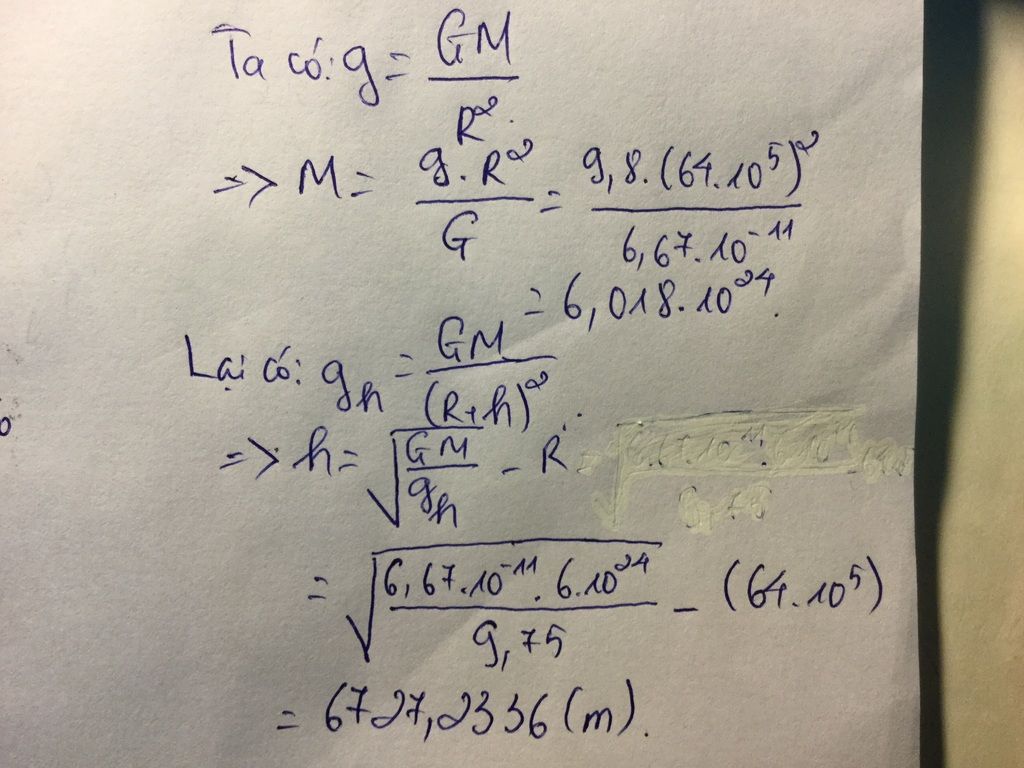 Ta có: g = GM / R².
=> M = g.R² / G = 9,8.(64.10⁵)² / 6,67.10⁻¹¹
= 6,018.10²⁴.
Lại có: gₕ = GM / (R+h)².
=> h = √(GM / gₕ) - R
= √(6,67.10⁻¹¹.6.10²⁴ / 9,75) - (64.10⁵)
= 6727,2336 (m).